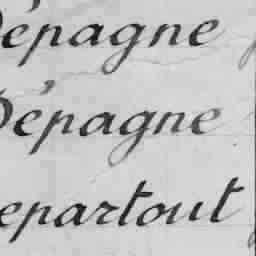 Dépagne
Dépagne
epartout